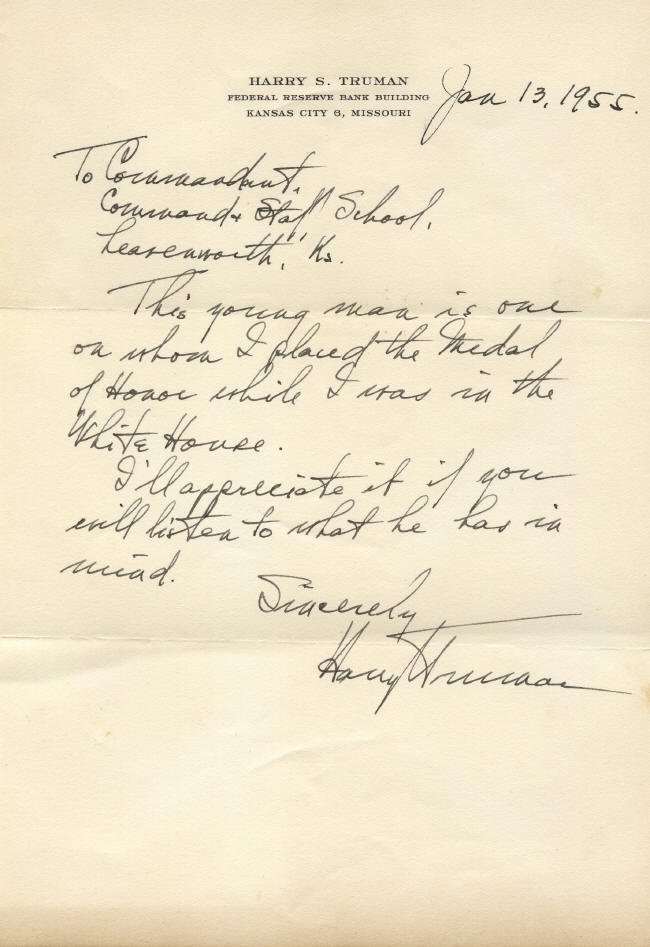 HARRY S. TRUMAN
FEDERAL RESERVE BANK BUILDING
KANSAS CITY 6, MISSOURI
Jan 13, 1955.
To Commandant,
Command & Staff School,
Leavenworth, Ks.
This young man is one
on whom I placed the Medal
of Honor while I was in the
White House.
I'll appreciate it if you
will listen to what he has in
mind.
Sincerely
Harry Truman